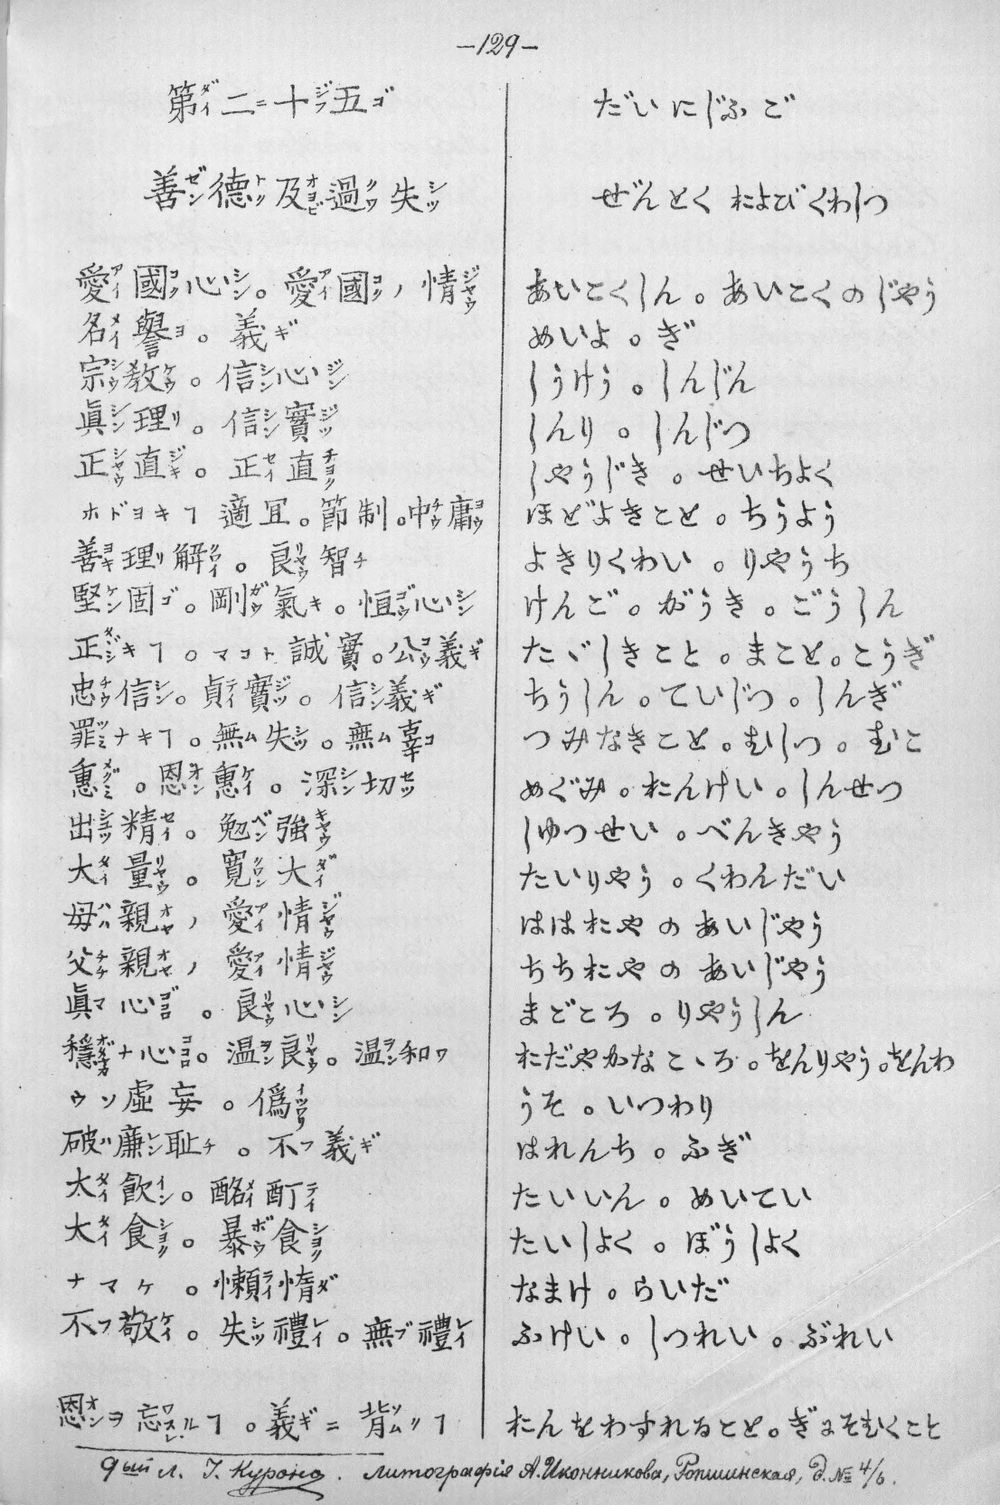 —129—
第二十五 だいにじふご
善德及過失 ぜんとくおよびくわしつ
愛國心。愛國ノ情 あいこくしん。あいこくのじやう
名譽。義 めいよ。ぎ
宗教。信心 しうけう。しんじん
眞理。信實 しんり。しんじつ
正直。正直 しやうじき。せいちよく
ホドヨキヿ 適宜。節制。中庸 ほどよきこと。ちうよう
善理解。良智 よきりくわい。りやうち
堅固。剛氣。恒心 けんご。がうき。ごうしん
正キヿ。マコト 誠實。公義 たゞしきこと。まこと。こうぎ
忠信。貞實。信義 ちうしん。ていじつ。しんぎ
罪ナキヿ。無失。無辜 つみなきこと。むしつ。むこ
惠。恩惠。深切 めぐみ。おんけい。しんせつ
出精。勉強 しゆつせい。べんきやう
大量。寬大 たいりやう。くわんだい
母親ノ愛情 ははおやのあいじやう
父親ノ愛情 ちちおやのあいじやう
眞心。良心 まごころ。りやうしん
穩ナ心。温良。温和 おだやかなこゝろ。をんりやう。をんわ
ウソ 虛妄。僞 うそ。いつわり
破廉耻。不義 はれんち。ふぎ
太飲。酩酊 たいいん。めいてい
太食。暴食 たいしよく。ぼうしよく
ナマケ。懶惰 なまけ。らいだ
不敬。失禮。無禮 ふけい。しつれい。ぶれい
恩ヲ忘ルヿ。義ニ背クヿ おんをわすれること。ぎにそむくこと
9ый л. І. Куроно. Литографія А. Иконникова, Ропшинская, д. № 4/6.